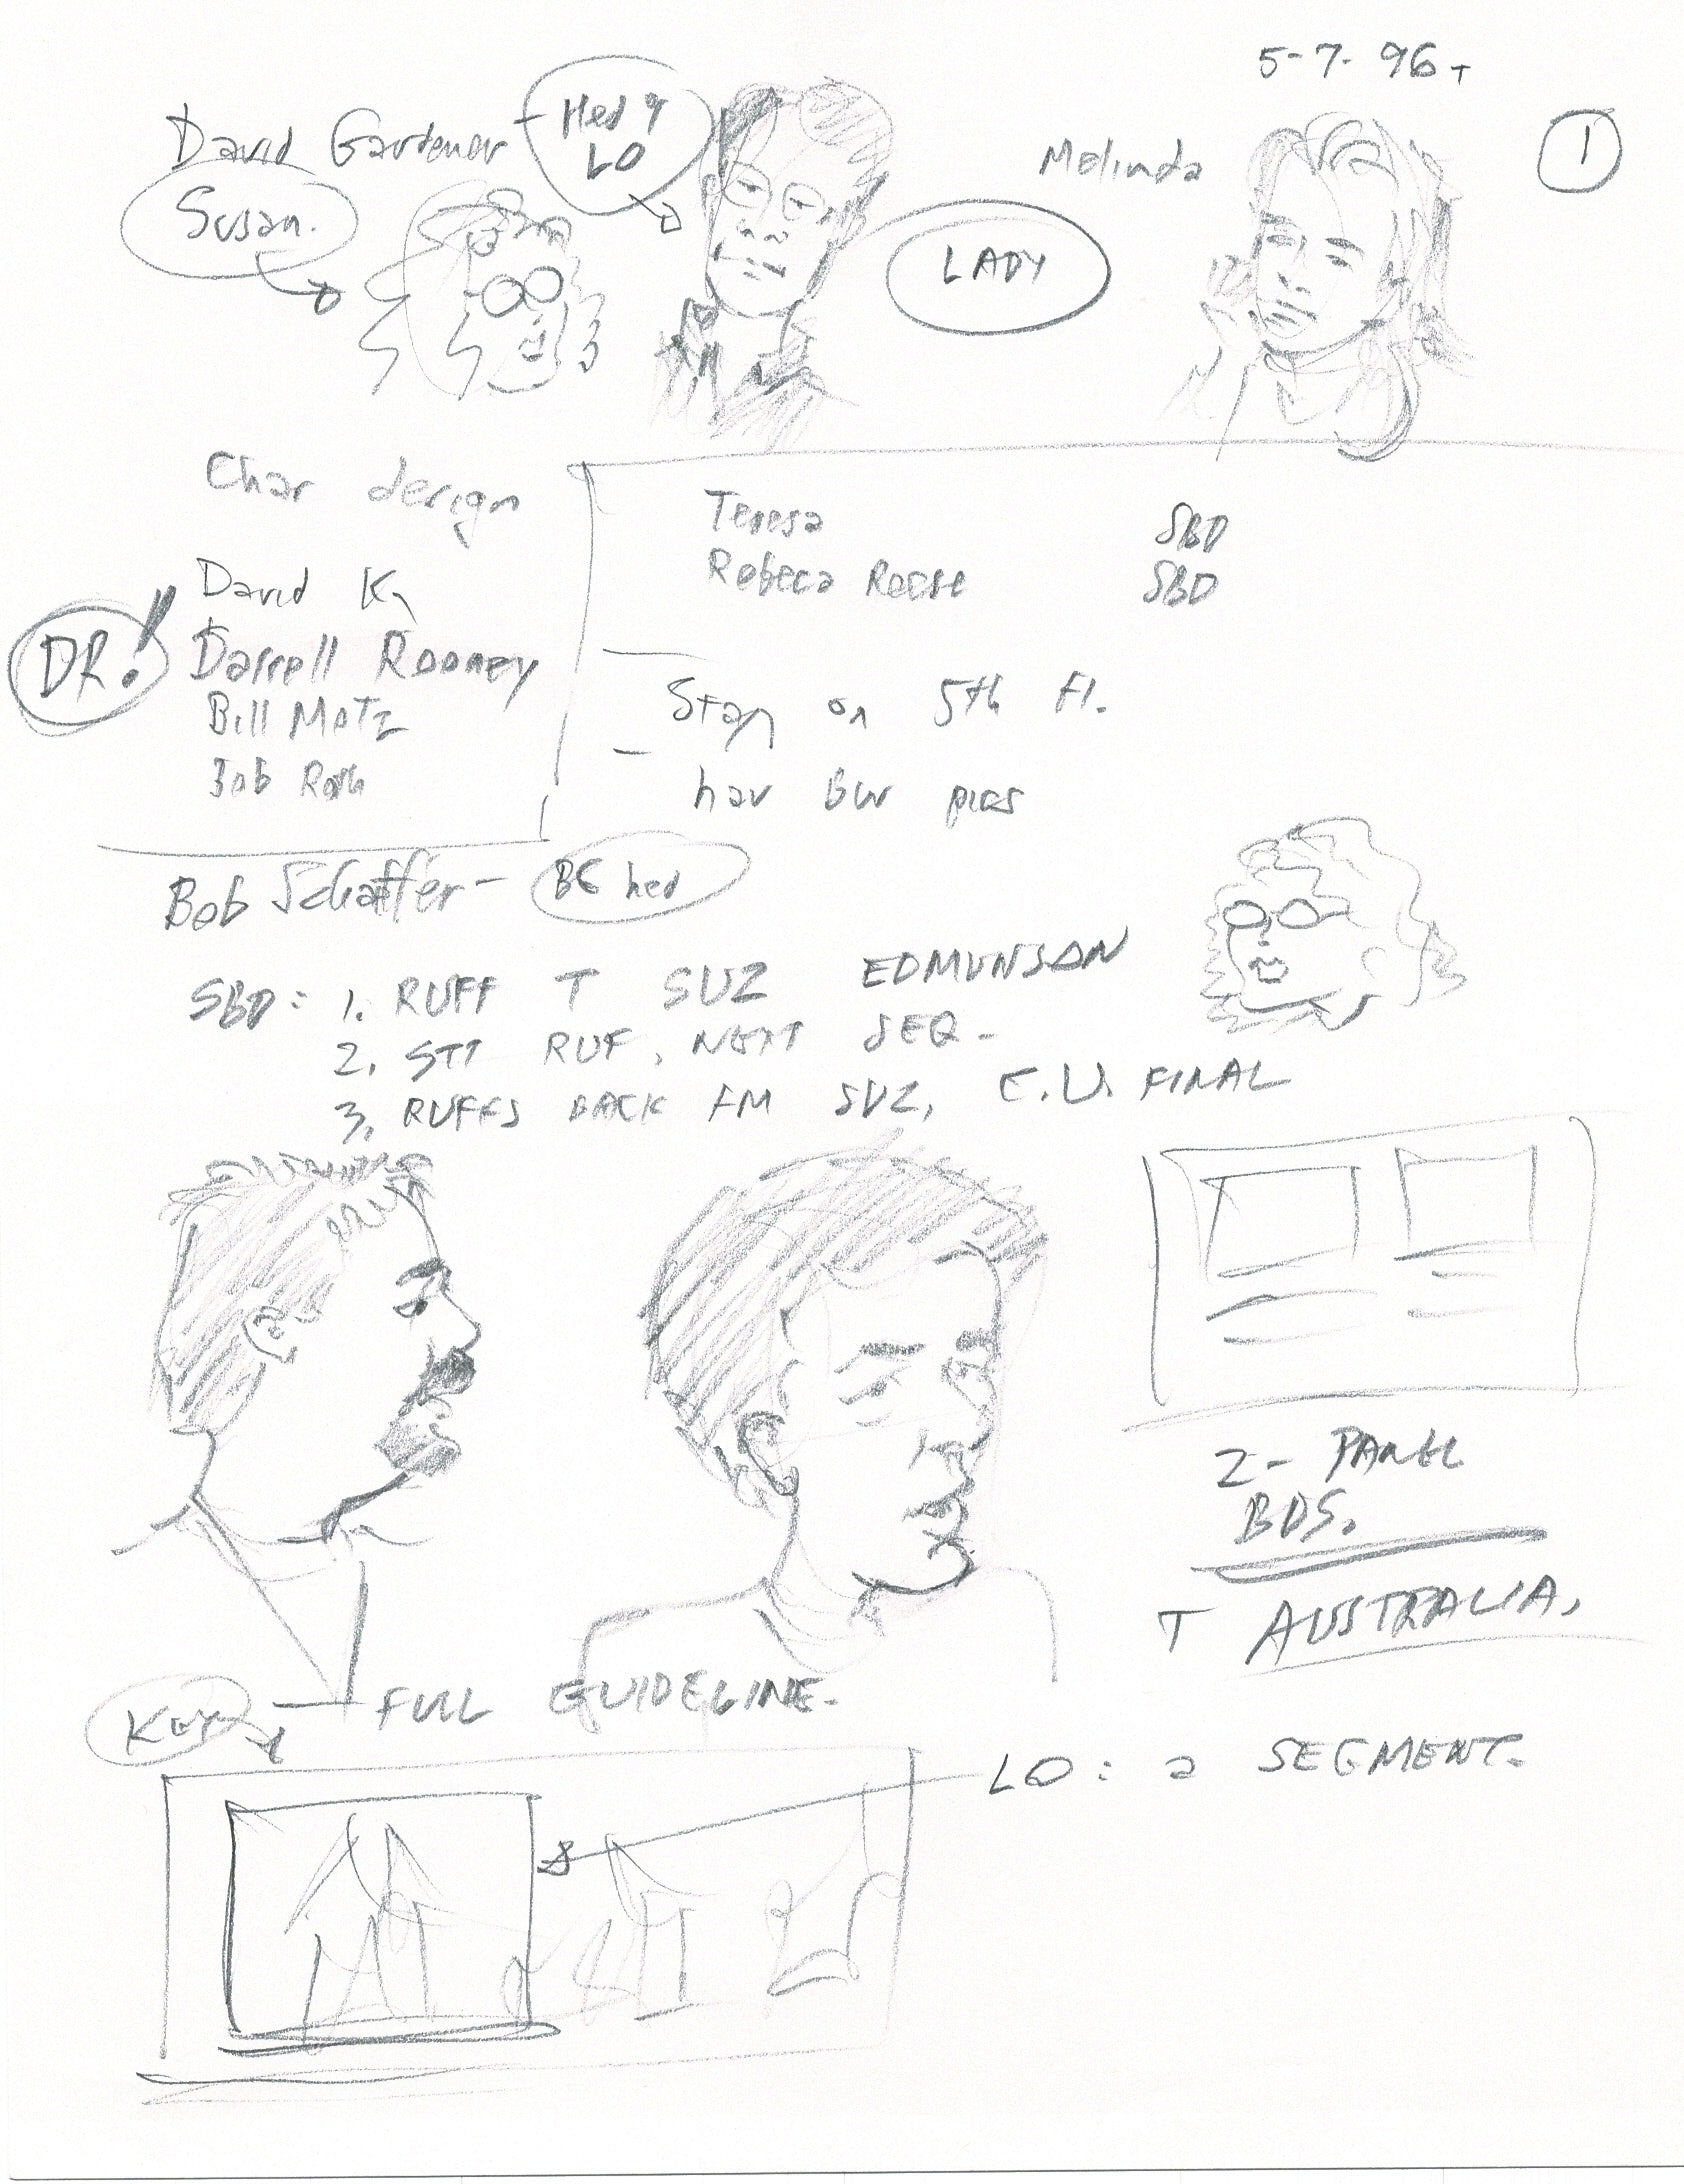 5-7-96 T
1
David Gardener - Hed 9
LO
Melinda
Susan.
LADY
Char design
Teresa SBD
Robeca Reese SBD
David K
DR! Darrell Rooney
Bill MoTz
Bob
- Stay on 5th Fl.
- hav BW pics
Bob Schaffer - BG hed
SBD: 1. RUFF T SUZ EDMUNSON
2. STT RUF, NEXT SEQ -
3. RUFFS BACK FM SUZ, C.U. FINAL
2- PANEL
BDS.
T AUSTRALIA.
KEY - FULL GUIDELINE.
LO: a SEGMENT.